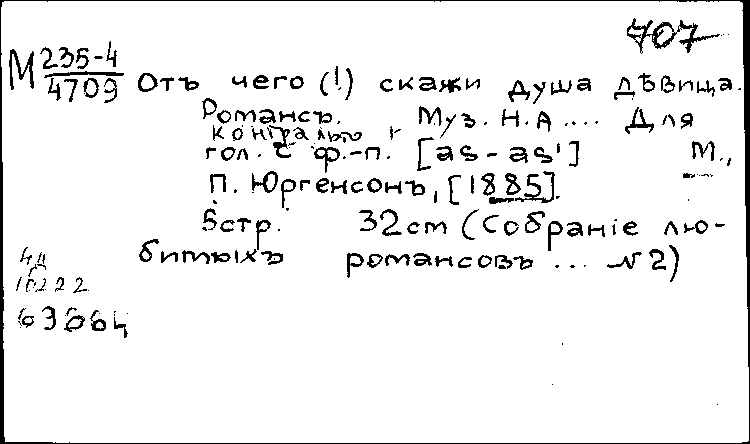 707
М 235-4/4709 Отъ чего (!) скажи душа дѣвица.
Романсъ. Муз. Н.А .... Для
контральто
гол. с ф.-п. [as-as'] М.,
П. Юргенсонъ, [1885].
5стр. 32cm (Собранiе лю-
битыхъ романсовъ ... №2)
4д
10222